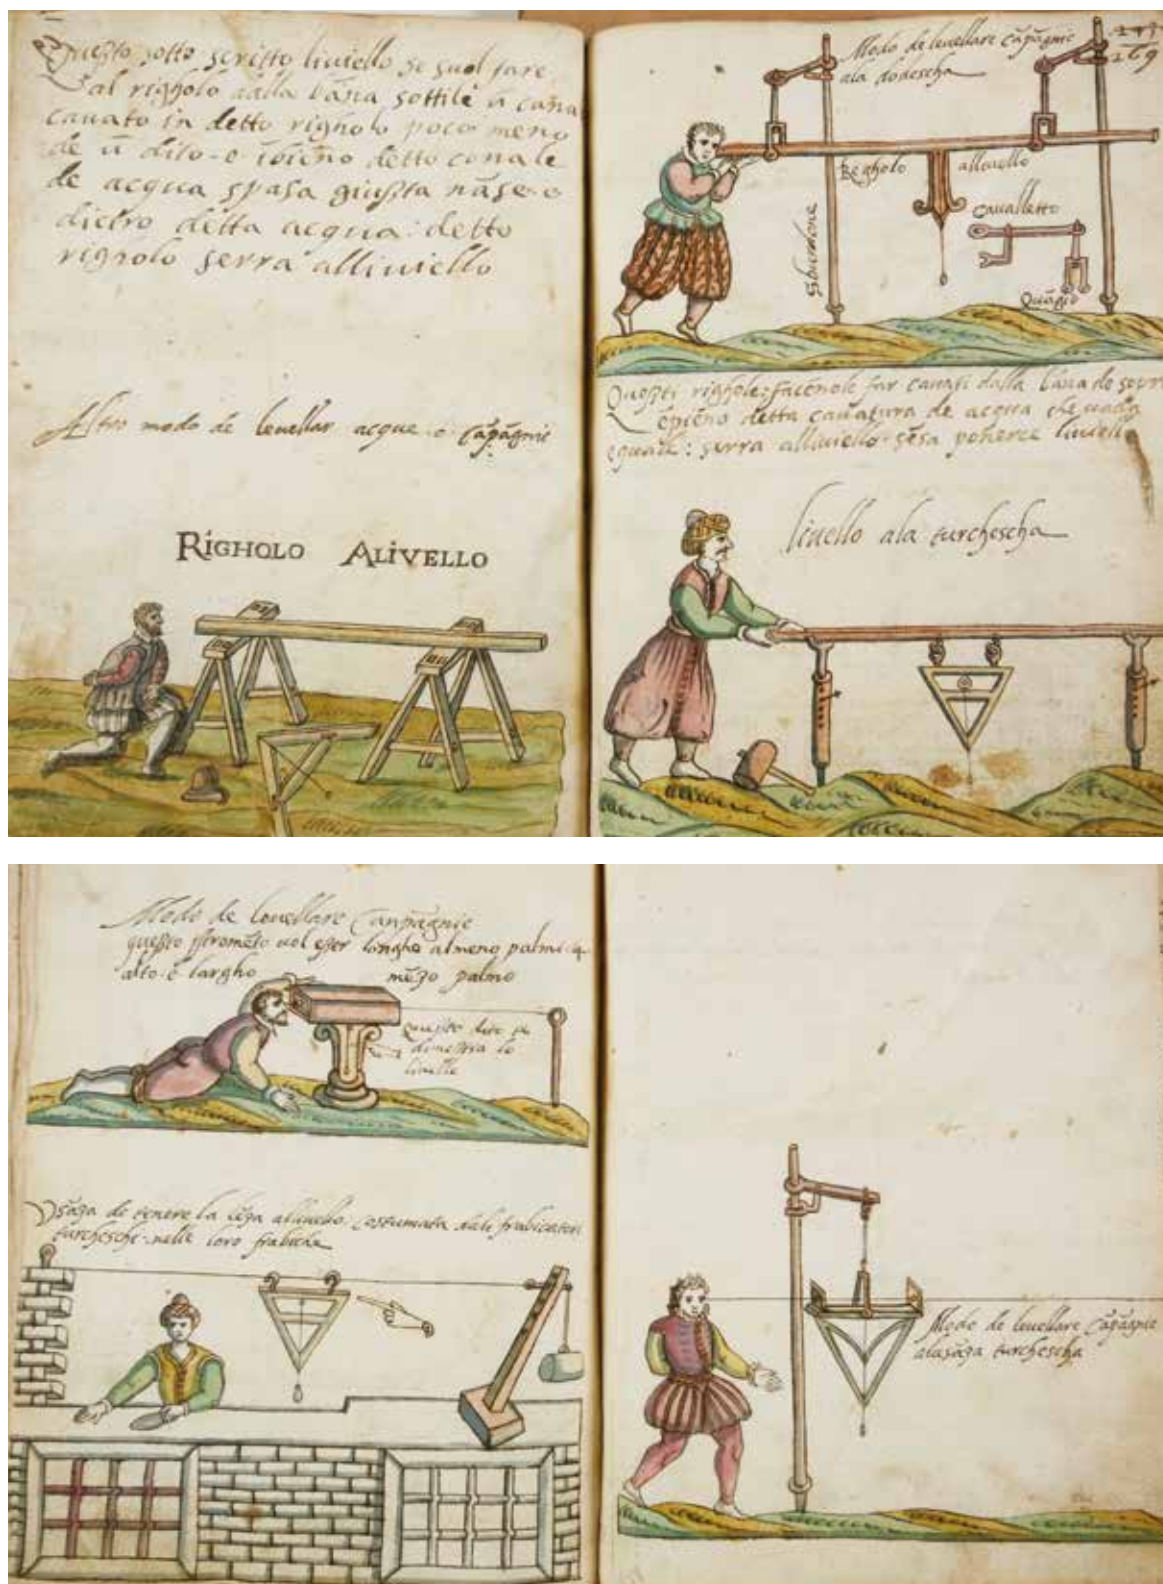 Questo sotto scritto liuiello se suol fare
al righolo dalla bãna sottile ũ cana
cauato in detto righolo poco meno
de ũ dito e ibieno detto conale
de acqua spasa giusta nãse o
dietro ditta acqua: detto
righolo serra alliuiello
Altro modo de leuellar acque e cãpãgnie
RIGHOLO ALIVELLO
Modo de leuellare cãpãgnie
ala dodescha
169
Regholo alliuello
Caualletto
Quãgio
Questi righole: facẽnole far cauati dalla bãna de sopra
epieno detta cauatura de acqua che uada
eguale: serra alliuiello sẽsa ponerce liuiello
liuello ala turchescha
Modo de leuellare Canpãgnie
questo stromẽto uol esser longho almeno palmi 4
alto e largho mẽzo palmo
Questo dito
dimostra lo
liuello
Vsãza de tenere la lẽza alliuello costumata dali frabicatori
turchesche nelle loro frabiche
Modo de leuellare Cãpãgnie
alusãza turchescha